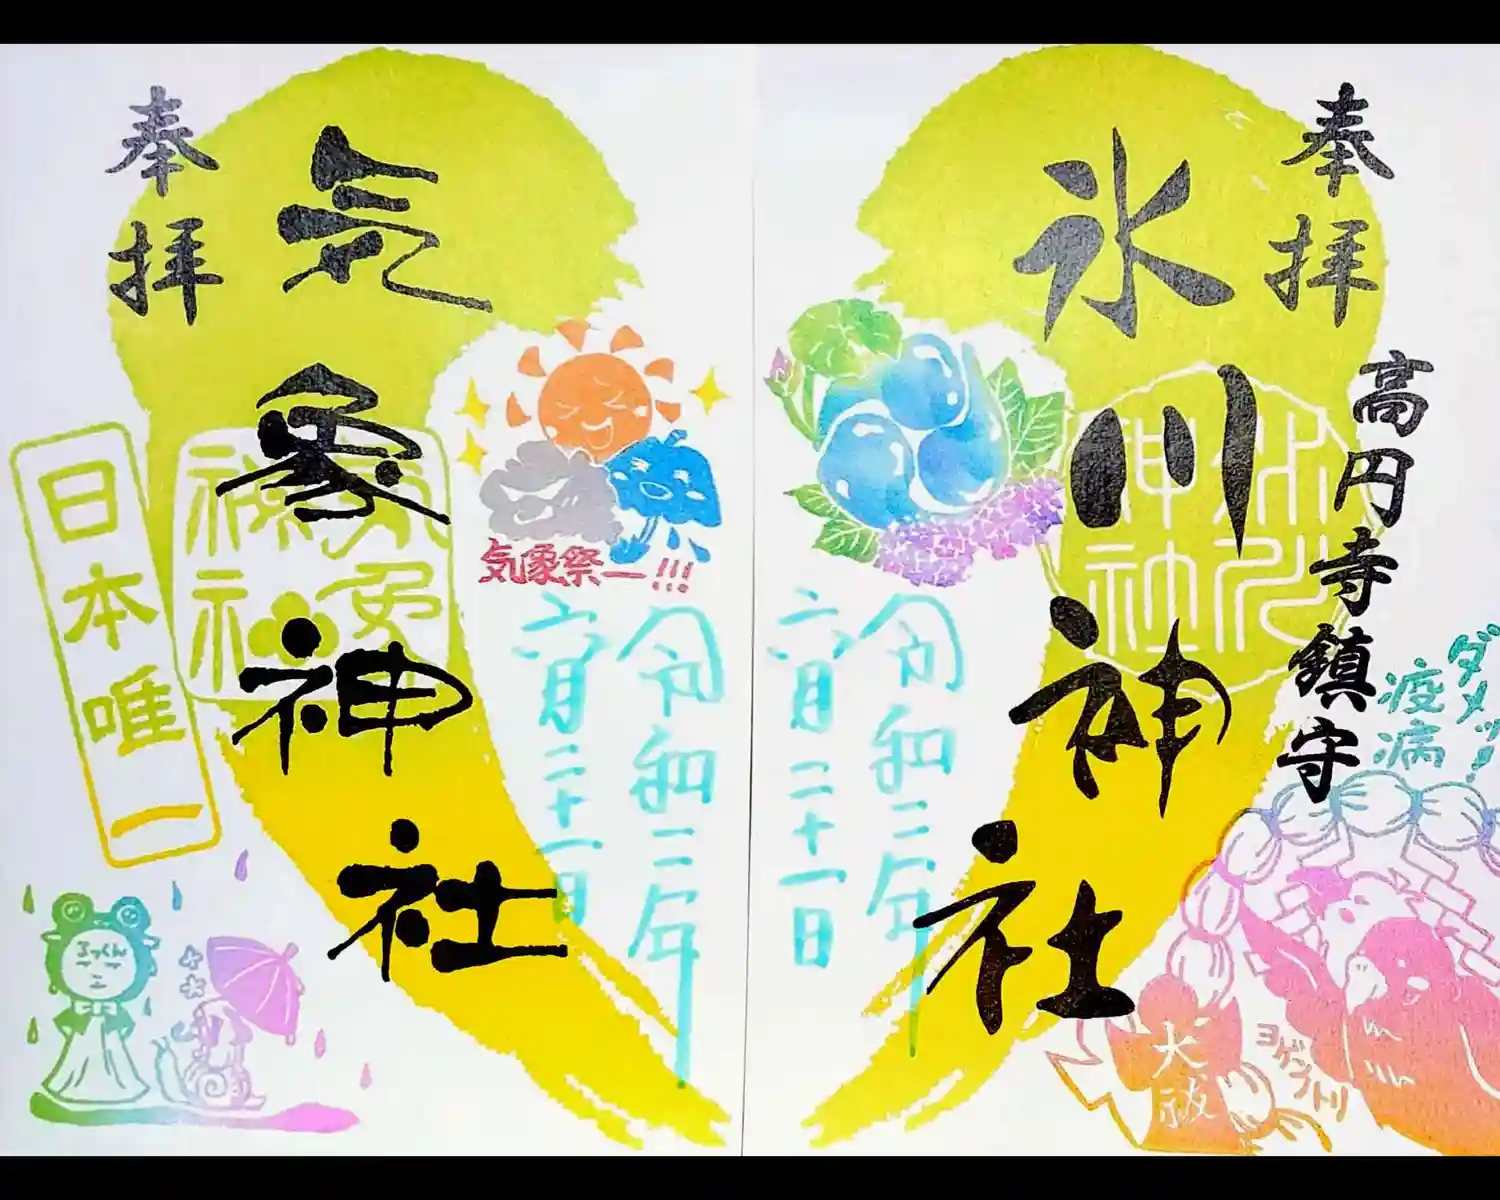 奉拝
氷川神社
高円寺鎮守
氷川
神社
令和二年
六月二十一日
ダメッ!
疫病
大祓
ヨゲンノトリ
気象神社
奉拝
気象
神社
日本唯一
気象祭ー!!!
令和二年
六月二十一日
るっくん